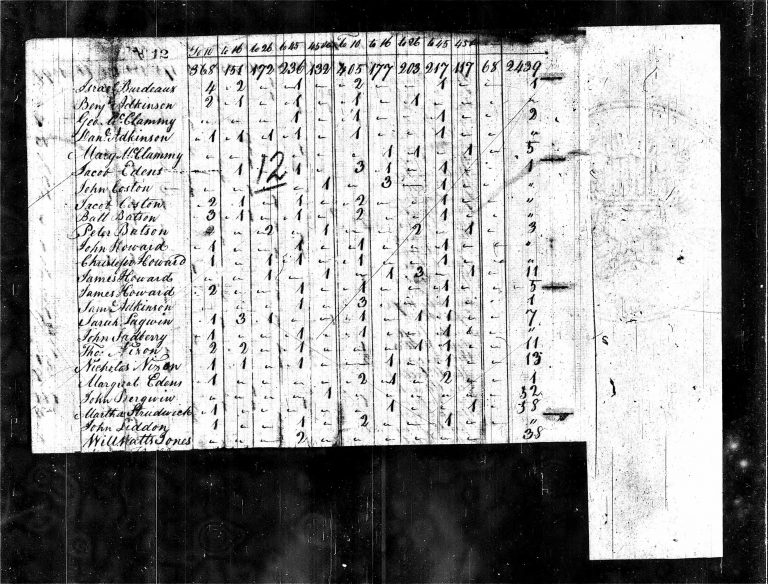 12 To 10 to 16 to 26 to 45 45 &c To 10 to 16 to 26 to 45 45 &c
368 151 172 236 132 405 177 203 217 117 68 2439
Israel Burdeaux 4 2 " 1 " 2 " " 1 " " 1
Benj. Adkinson 2 1 " 1 " 1 " 1 " " " "
Geo. McClammy " " " 1 " 1 " " 1 " " 2
Dan. Adkinson 1 1 1 1 " 1 1 " 1 " " "
Mary McClammy " " " " " " 1 1 " 1 " 5
Jacob Edens " 1 " 1 " 3 1 " 1 " " 1
John Coston " " " " 1 " 3 " 1 " " "
Jacob Coston 2 1 " 1 " 2 " " 1 " " "
Batt Batson 3 1 " 1 " 2 " " 1 " " "
Peter Batson 2 " 2 " 1 " " 2 " 1 " 3
John Howard 1 " " 1 " 1 " " 1 " " "
Howard 1 " 1 1 " 1 1 " 1 " " "
James Howard " " 1 " 1 " 1 3 " 1 " 11
James Howard 2 " " 1 " 1 " " 1 " " 5
Sam. Adkinson " " " 1 " 3 " " 1 " " 1
Sarah 1 3 1 " " 1 " 1 1 " " 7
John 1 " " 1 " 1 " " 1 " " "
Tho. Nixon 2 2 " 1 " 1 1 " 1 " " 11
Nicholas Nixon 1 1 1 1 " " 1 " 1 " " 13
Margret Edens 1 " " " " 2 1 " 2 " " 1
John " " " " 1 " " " " " " 32
Martha 1 " " " " " 1 " 1 " " 38
John 1 " " 1 " 2 " " 1 " " "
Will Watts Jones " " " 2 " " " " " " " 38